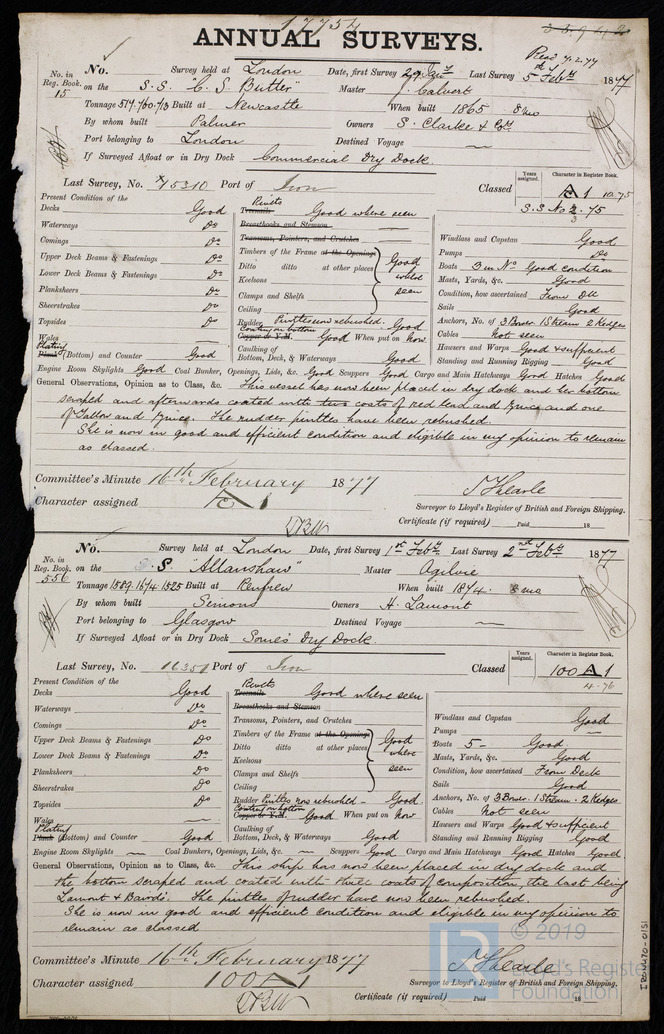 17754
ANNUAL SURVEYS.
Recd 7.2.77
No. in Reg. Book. 15
No. Survey held at London Date, first Survey 29 Jany Last Survey 5th Feby 1877
on the S.S. "C. S. Butler" Master J. Calvert
Tonnage 574.760.713 Built at Newcastle When built 1865 8 mo
By whom built Palmer Owners S. Clarke & Co
Port belonging to London Destined Voyage —
If Surveyed Afloat or in Dry Dock Commercial Dry Dock
Last Survey, No. 15210 Port of Iron Classed
Years assigned.
Character in Register Book.
A 1 10.75
S.S. No 2. 75
Present Condition of the
Decks Good
Waterways Do
Comings Do
Upper Deck Beams & Fastenings Do
Lower Deck Beams & Fastenings Do
Planksheers Do
Sheerstrakes Do
Topsides Do
Wales
Plating Plank (Bottom) and Counter Good
Rivets Treenails Good where seen
Breasthooks and Stemson
Transoms, Pointers, and Crutches
Timbers of the Frame at the Openings
Ditto ditto at other places
Keelsons
Clamps and Shelfs
Ceiling
Good where seen
Rudder Pintles now rebushed. Good
Coating on bottom Copper to Y.M. Good When put on now
Caulking of Bottom, Deck, & Waterways Good
Windlass and Capstan Good
Pumps Do
Boats 3 in No Good condition
Masts, Yards, &c. Good
Condition, how ascertained From Dk
Sails Good
Anchors, No. of 3 Bower 1 Stream 2 Kedges
Cables not seen
Hawsers and Warps Good & sufficient
Standing and Running Rigging Good
Engine Room Skylights Good Coal Bunker, Openings, Lids, &c. Good Scuppers Good Cargo and Main Hatchways Good Hatches Good
General Observations, Opinion as to Class, &c. This vessel has now been placed in dry dock and her bottom
scraped and afterwards coated with two coats of red lead and and one
of Tallow and. The rudder pintles have been rebushed.
She is now in good and efficient condition and eligible in my opinion to remain
as classed.
Committee's Minute 16th February 1877
Character assigned A 1
Surveyor to Lloyd's Register of British and Foreign Shipping.
Certificate (if required) Paid 18
No. in Reg. Book. 556
No. Survey held at London Date, first Survey 1st Feby Last Survey 2nd Feby 1877
on the S. "Allanshaw" Master Ogilvie
Tonnage 1589.1674 1525 Built at Renfrew When built 1874. 8 mo
By whom built Simons Owners H. Lamont
Port belonging to Glasgow Destined Voyage —
If Surveyed Afloat or in Dry Dock Somes Dry Dock.
Last Survey, No. 16351 Port of Iron Classed
Years assigned.
Character in Register Book.
100 A 1
4.76
Present Condition of the
Decks Good
Waterways Do
Comings Do
Upper Deck Beams & Fastenings Do
Lower Deck Beams & Fastenings Do
Planksheers Do
Sheerstrakes Do
Topsides Do
Wales
Plating Plank (Bottom) and Counter Good
Rivets Treenails Good where seen
Breasthooks and Stemson
Transoms, Pointers, and Crutches
Timbers of the Frame at the Openings
Ditto ditto at other places
Keelsons
Clamps and Shelfs
Ceiling
Good where seen
Rudder Pintles now rebushed – Good
Coating on bottom Copper to Y.M. Good When put on now
Caulking of Bottom, Deck, & Waterways Good
Windlass and Capstan Good
Pumps —
Boats 5 – Good
Masts, Yards, &c. Good
Condition, how ascertained From Deck
Sails Good
Anchors, No. of 3 Bower. 1 Stream. 2 Kedges
Cables not seen
Hawsers and Warps Good & sufficient
Standing and Running Rigging Good
Engine Room Skylights — Coal Bunkers, Openings, Lids, &c. — Scuppers Good Cargo and Main Hatchways Good Hatches Good
General Observations, Opinion as to Class, &c. This ship has now been placed in dry dock and
the bottom scraped and coated with three coats of composition, the last being
Lamont & Bairds. The pintles of rudder have now been rebushed.
She is now in good and efficient condition and eligible in my opinion to
remain as classed
Committee's Minute 16th February 1877
Character assigned 100 A 1
Surveyor to Lloyd's Register of British and Foreign Shipping.
Certificate (if required) Paid 18
© 2019
Lloyd's Register
Foundation
IRON470-0151